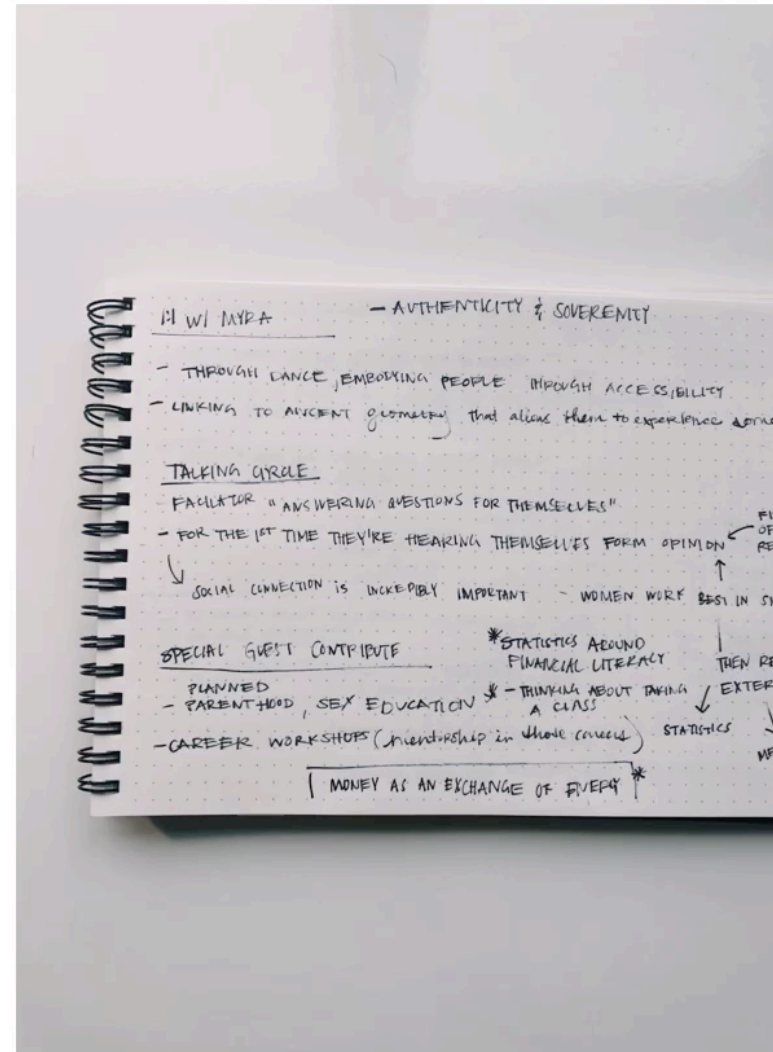 1:1 W/ MYRA
- AUTHENTICITY & SOVERENITY
- THROUGH DANCE, EMBODYING PEOPLE THROUGH ACCESSIBILITY
- LINKING TO ANCENT geometry that aligns them to experience
TALKING CIRCLE
- FACILATOR "ANSWERING QUESTIONS FOR THEMSELVES"
- FOR THE 1ST TIME THEY'RE HEARING THEMSELVES FORM OPINION
SOCIAL CONNECTION is INCREDIBLY IMPORTANT - WOMEN WORK BEST IN
SPECIAL GUEST CONTRIBUTE
PLANNED
- PARENTHOOD, SEX EDUCATION
- CAREER WORKSHOPS (mentorship in those careers)
*STATISTICS AROUND
FINANCIAL LITERACY
* - THINKING ABOUT TAKING
A CLASS
THEN
STATISTICS
MONEY AS AN EXCHANGE OF ENERGY *